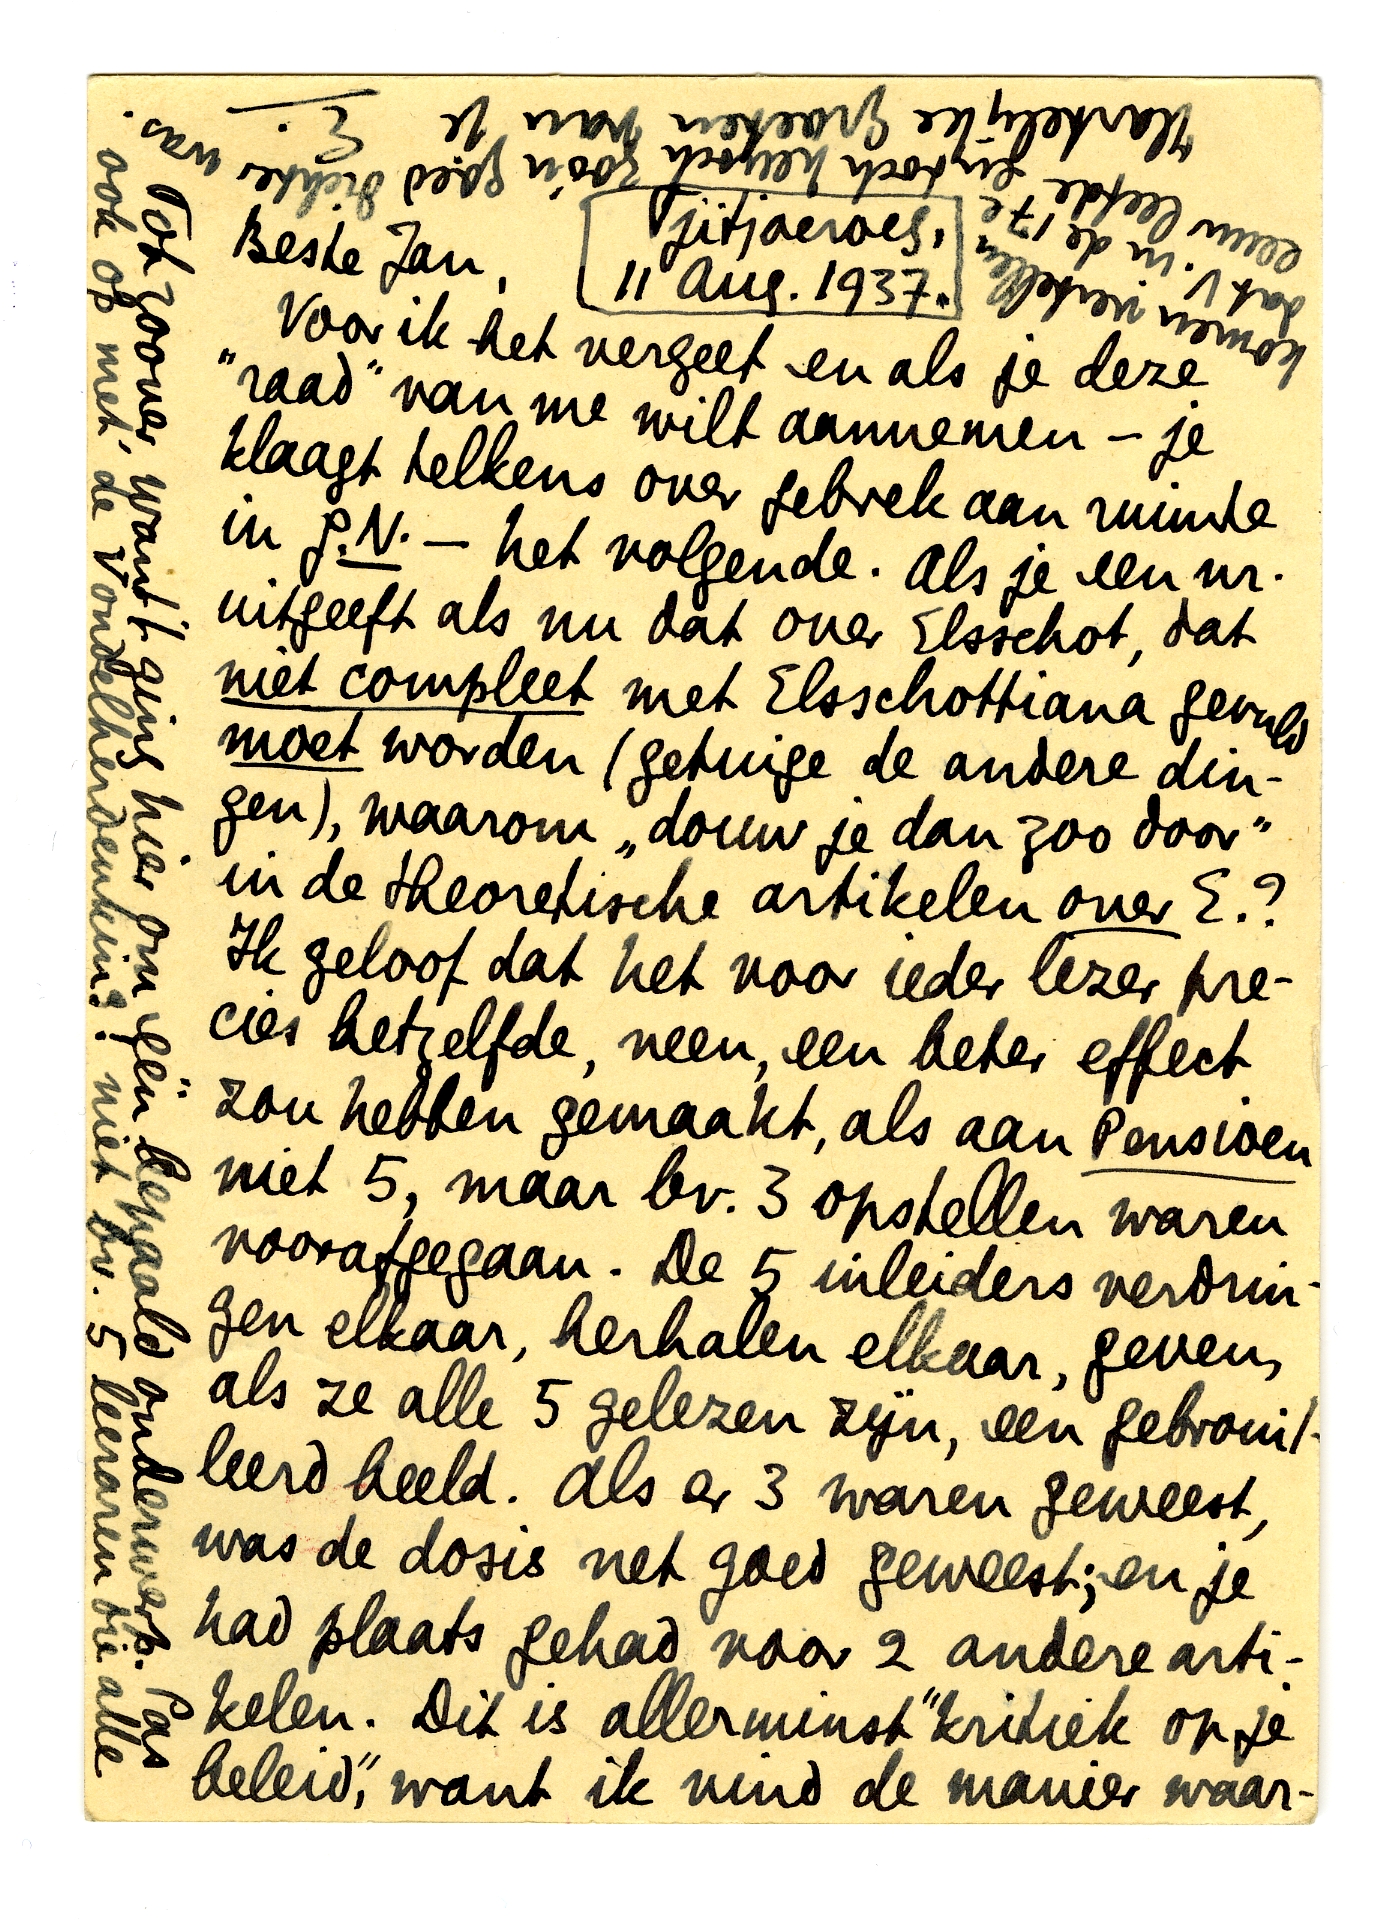 Tjitjoeroeg,
11 Aug. 1937.
Beste Jan,
Voor ik het vergeet en als je deze
"raad" van me wilt aannemen – je
klaagt telkens over gebrek aan ruimte
in G.N. – het volgende. Als je een nr.
uitgeeft als nu dat over Elsschot, dat
niet compleet met Elsschottiana gevuld
moet worden (getuige de andere din-
gen), waarom „douw je dan zoo door"
in de theoretische artikelen over E.?
Ik geloof dat het voor ieder lezer pre-
cies hetzelfde, neen, een beter effect
zou hebben gemaakt, als aan Pensioen
niet 5, maar bv. 3 opstellen waren
voorafgegaan. De 5 inleiders verdrin-
gen elkaar, herhalen elkaar, geven,
als ze alle 5 gelezen zijn, een gebrouil-
leerd beeld. Als er 3 waren geweest,
was de dosis net goed geweest; en je
had plaats gehad voor 2 andere arti-
kelen. Dit is allerminst "kritiek op je
beleid", want ik vind de manier waar-
Tot zoover, want 't ging hier om één bepaald onderwerp. Pas
ook op met de Vondelherdenking! niet bv. 5 leeraren die alle
komen vertellen
dat V. in de 17e
eeuw leefde en toch heusch zoo'n goed dichter was.
Hartelijke groeten van je
E.